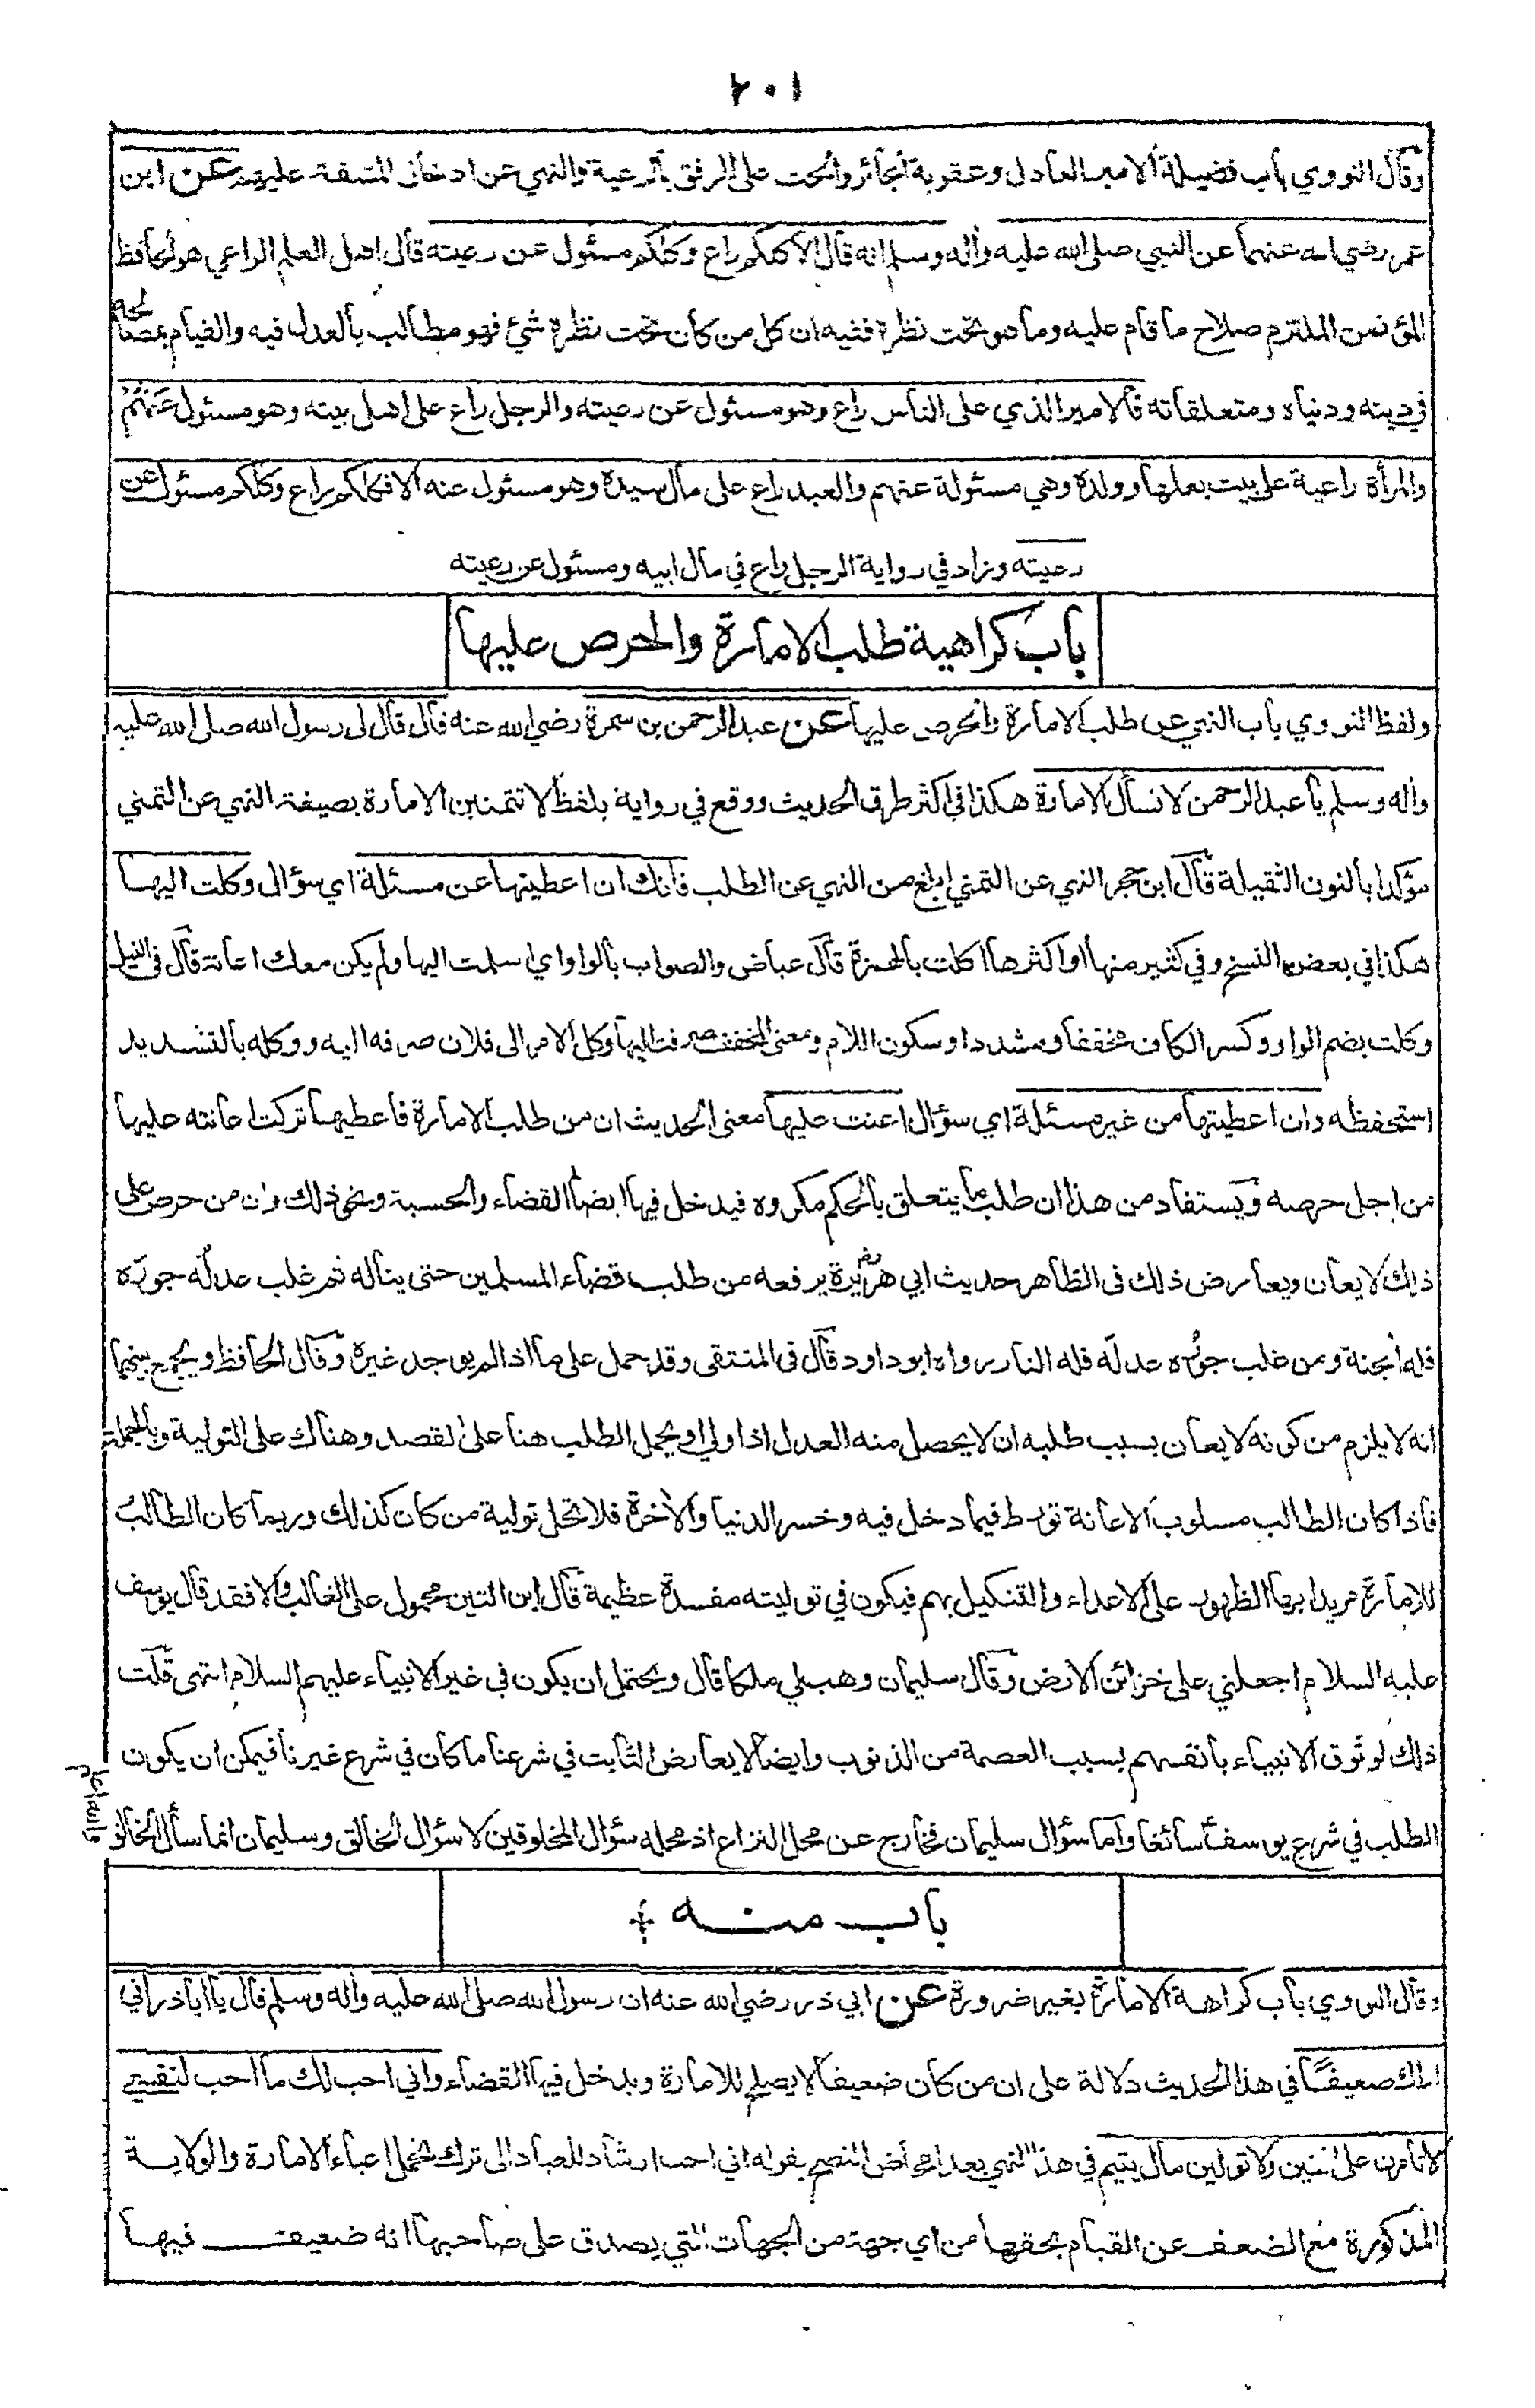 ٢٠١
وقال النووي باب فضيلة الامير العادل وعقوبة الجائر والحث على الرفق بالرعية والنهي عن ادخال المشقة عليهم عن ابن
عمر رضي الله عنهما عن النبي صلى الله عليه واله وسلم انه قال الا كلكم راع وكلكم مسئول عن رعيته قال اهل العلم الراعي هو الحافظ
المؤتمن الملتزم صلاح ما قام عليه وما هو تحت نظره ففيه ان كل من كان تحت نظره شئ فهو مطالب بالعدل فيه والقيام بمصالحه
في دينه ودنياه ومتعلقاته فالامير الذي على الناس راع وهو مسئول عن رعيته والرجل راع على اهل بيته وهو مسئول عنهم
والمرأة راعية على بيت بعلها وولده وهي مسئولة عنهم والعبد راع على مال سيده وهو مسئول عنه الا فكلكم راع وكلكم مسئول عن
رعيته وزاد في رواية الرجل راع في مال ابيه ومسئول عن رعيته
باب كراهية طلب الامارة والحرص عليها
ولفظ النووي باب النهي عن طلب الامارة والحرص عليها عن عبد الرحمن بن سمرة رضي الله عنه قال قال لى رسول الله صلى الله عليه
واله وسلم يا عبد الرحمن لا تسأل الامارة هكذا في اكثر طرق الحديث ووقع في رواية بلفظ لا تتمنين الامارة بصيغة النهي عن التمني
مؤكدا بالنون الثقيلة قال ابن حجر النهي عن التمني ابلغ من النهي عن الطلب فانك ان اعطيتها عن مسئلة اي سؤال وكلت اليها
هكذا في بعض النسخ وفي كثير منها او اكثرها اكلت بالهمزة قال عياض والصواب بالواو اي اسلمت اليها ولم يكن معك اعانة قال في النيل
وكلت بضم الواو وكسر الكاف مخففا ومشددا وسكون اللام ومعنى المخفف صرفت اليها وكل الامر الى فلان صرفه اليه ووكله بالتشديد
استحفظه وان اعطيتها من غير مسئلة اي سؤال اعنت عليها معنى الحديث ان من طلب الامارة فاعطيها تركت اعانته عليها
من اجل حرصه ويستفاد من هذا ان طلب ما يتعلق بالحكم مكروه فيدخل فيها ايضا القضاء والحسبة ونحو ذلك وان من حرص على
ذلك لا يعان ويعارض ذلك فى الظاهر حديث ابي هريرة يرفعه من طلب قضاء المسلمين حتى يناله ثم غلب عدله جوره
فله الجنة ومن غلب جوره عدله فله النار رواه ابو داود قال فى المنتقى وقد حمل على ما اذا لم يوجد غيره وقال الحافظ ويجمع بينهما
انه لا يلزم من كونه لا يعان بسبب طلبه ان لا يحصل منه العدل اذا ولي او يحمل الطلب هنا على القصد وهناك على التولية وبالجملة
فاذا كان الطالب مسلوب الاعانة تورط فيما دخل فيه وخسر الدنيا والاخرة فلا تحل تولية من كان كذلك وربما كان الطالب
للامارة مريدا بها الظهور على الاعداء والتنكيل بهم فيكون في توليته مفسدة عظيمة قال ابن التين محمول على الغالب والا فقد قال يوسف
عليه السلام اجعلني على خزائن الارض وقال سليمان وهب لي ملكا قال ويحتمل ان يكون فى غير الانبياء عليهم السلام انتهى قلت
ذلك لوثوق الانبياء بانفسهم بسبب العصمة من الذنوب وايضا لا يعارض الثابت في شرعنا ما كان في شرع غيرنا فيمكن ان يكون
الطلب في شرع يوسف سائغا واما سؤال سليمان فخارج عن محل النزاع اذ محله سؤال المخلوقين لا سؤال الخالق وسليمان انما سأل الخالق
والله اعلم
باب منه
وقال النووي باب كراهة الامارة بغير ضرورة عن ابي ذر رضي الله عنه ان رسول الله صلى الله عليه واله وسلم قال يا ابا ذر اني
اراك ضعيفا في هذا الحديث دلالة على ان من كان ضعيفا لا يصلح للامارة ويدخل فيها القضاء واني احب لك ما احب لنفسي
لا تأمرن على اثنين ولا تولين مال يتيم في هذا النهي بعد امحاض النصح بقوله اني احب ارشاد للعباد الى ترك تحمل اعباء الامارة والولاية
المذكورة مع الضعف عن القيام بحقها من اي جهة من الجهات التي يصدق على صاحبها انه ضعيف فيها